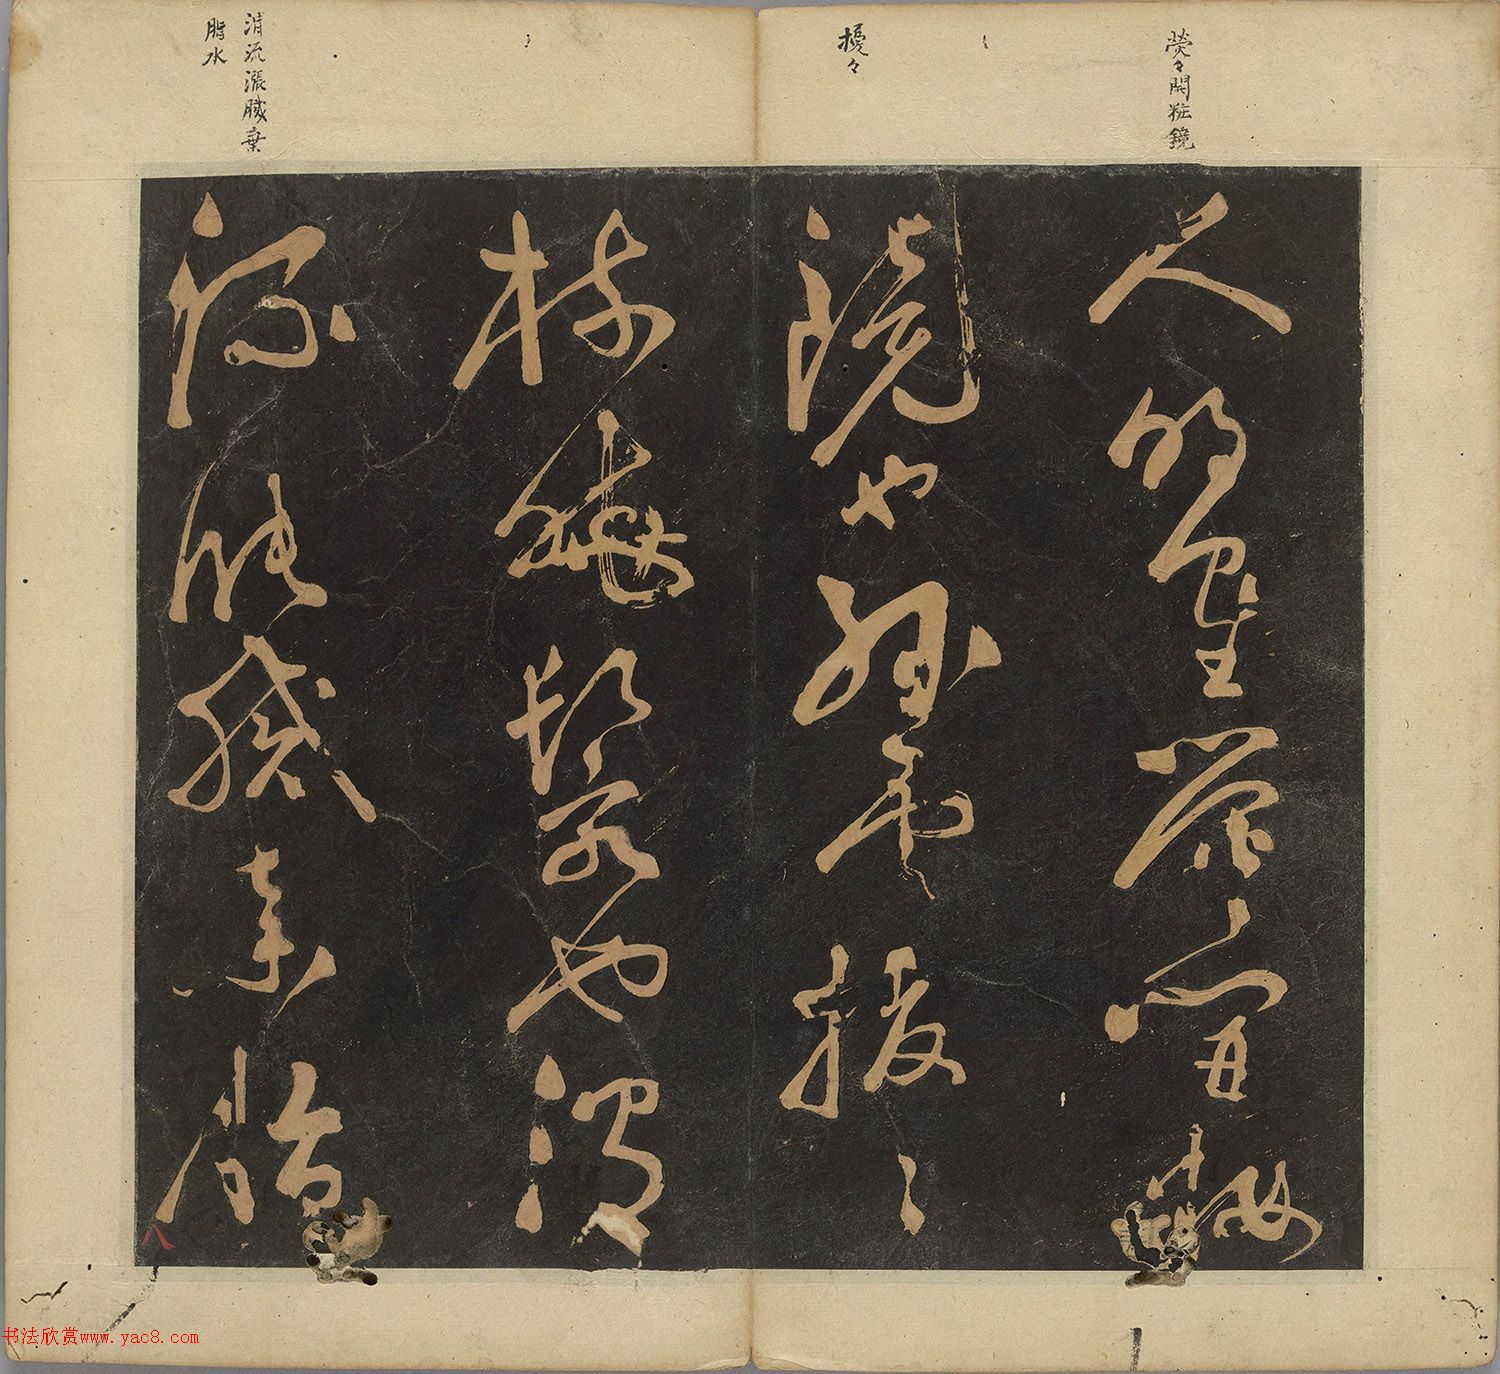 熒々開粧鏡
擾々
渭流漲膩棄
脂水
人明星熒々開粧
鏡也緑雲擾々
梳曉鬟也渭
流漲膩棄脂
八
书法欣赏www.yac8.com